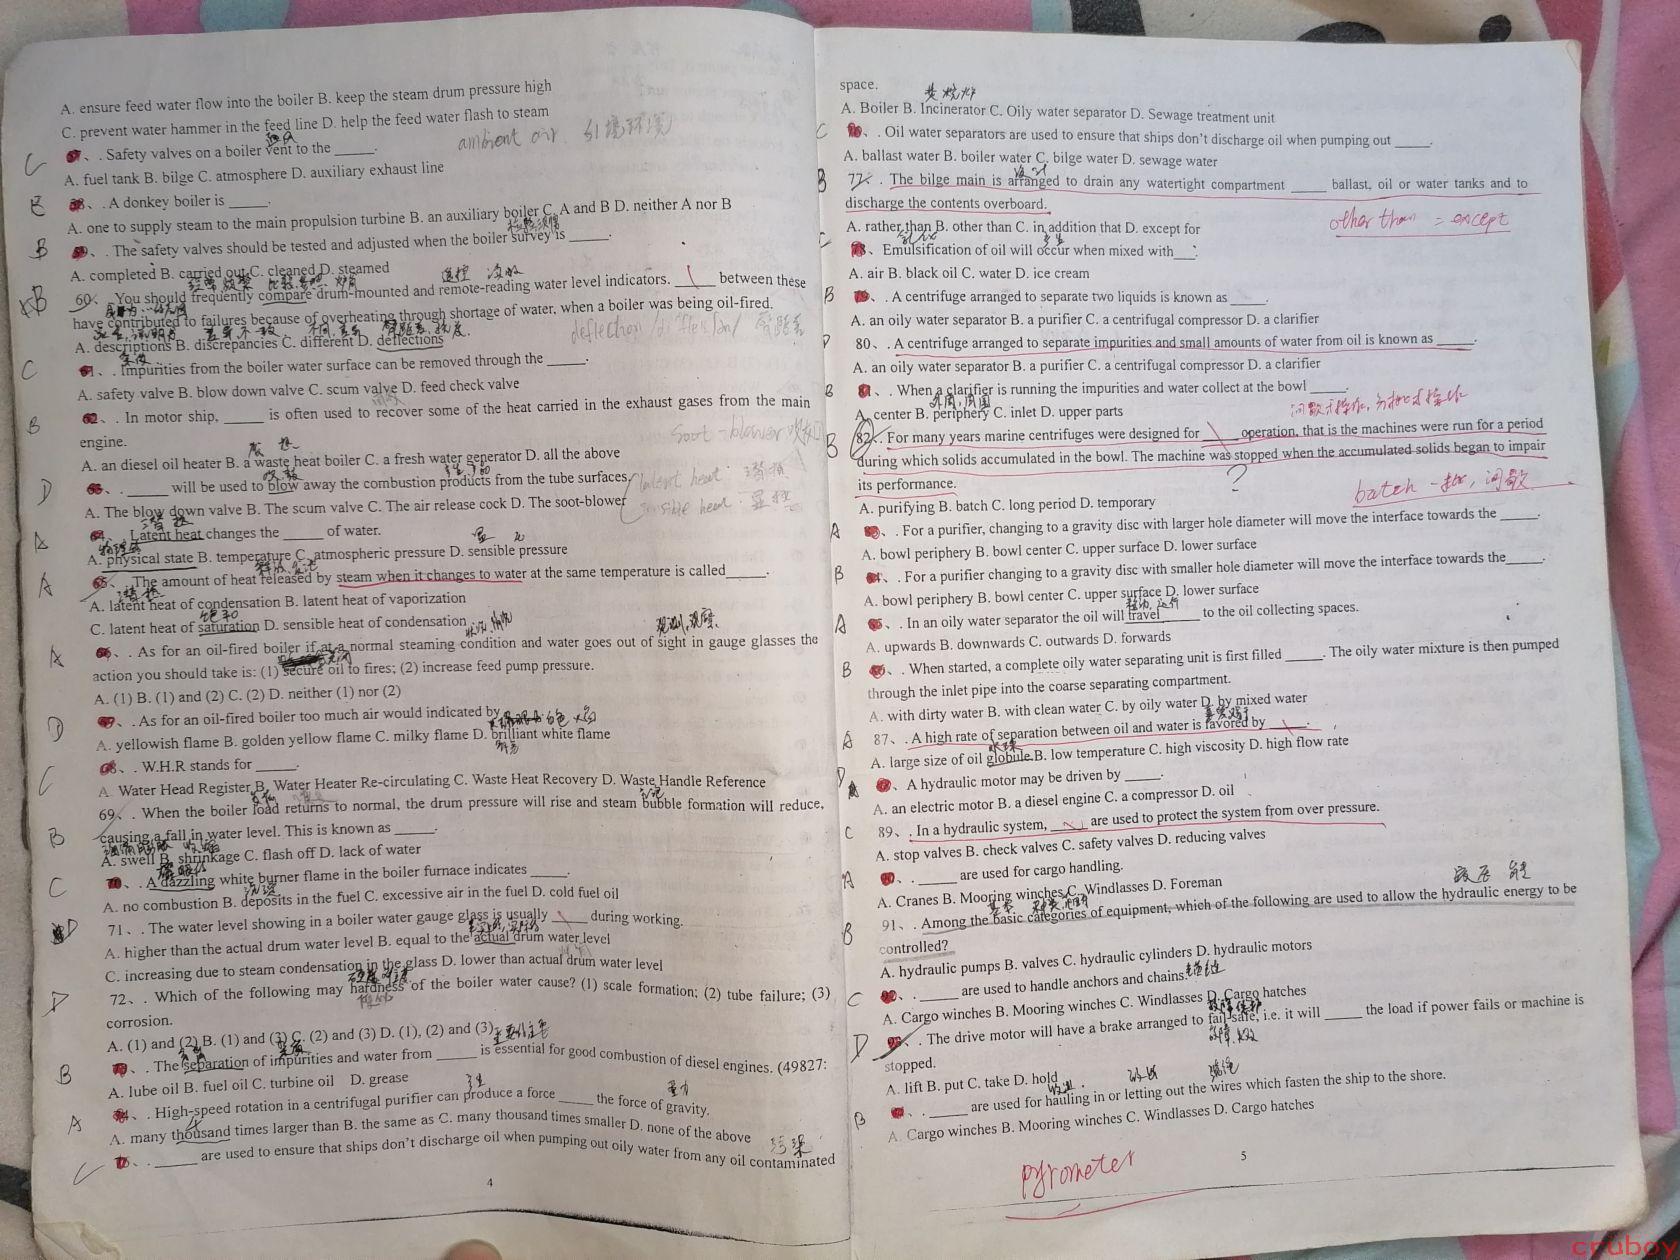 A. ensure feed water flow into the boiler B. keep the steam drum pressure high
C. prevent water hammer in the feed line D. help the feed water flash to steam
ambient air.
C 57、. Safety valves on a boiler vent to the _____.
A. fuel tank B. bilge C. atmosphere D. auxiliary exhaust line
58、. A donkey boiler is _____.
A. one to supply steam to the main propulsion turbine B. an auxiliary boiler C. A and B D. neither A nor B
B 59、. The safety valves should be tested and adjusted when the boiler survey is _____.
A. completed B. carried out C. cleaned D. steamed
B 60、. You should frequently compare drum-mounted and remote-reading water level indicators. _____ between these
have contributed to failures because of overheating through shortage of water, when a boiler was being oil-fired.
A. descriptions B. discrepancies C. different D. deflections
C 61、. Impurities from the boiler water surface can be removed through the _____.
A. safety valve B. blow down valve C. scum valve D. feed check valve
B 62、. In motor ship, _____ is often used to recover some of the heat carried in the exhaust gases from the main
engine.
soot-blower
A. an diesel oil heater B. a waste heat boiler C. a fresh water generator D. all the above
D 63、. _____ will be used to blow away the combustion products from the tube surfaces.
latent heat 潜热
A. The blow down valve B. The scum valve C. The air release cock D. The soot-blower
sensible heat 显热
A 64、. Latent heat changes the _____ of water.
A. physical state B. temperature C. atmospheric pressure D. sensible pressure
A 65、. The amount of heat released by steam when it changes to water at the same temperature is called_____.
潜热
A. latent heat of condensation B. latent heat of vaporization
饱和
C. latent heat of saturation D. sensible heat of condensation
A 66、. As for an oil-fired boiler if at a normal steaming condition and water goes out of sight in gauge glasses the
action you should take is: (1) secure oil to fires; (2) increase feed pump pressure.
A. (1) B. (1) and (2) C. (2) D. neither (1) nor (2)
D 67、. As for an oil-fired boiler too much air would indicated by
A. yellowish flame B. golden yellow flame C. milky flame D. brilliant white flame
C 68、. W.H.R stands for _____.
A. Water Head Register B. Water Heater Re-circulating C. Waste Heat Recovery D. Waste Handle Reference
69、. When the boiler load returns to normal, the drum pressure will rise and steam bubble formation will reduce,
B causing a fall in water level. This is known as _____.
A. swell B. shrinkage C. flash off D. lack of water
C 70、. A dazzling white burner flame in the boiler furnace indicates _____.
A. no combustion B. deposits in the fuel C. excessive air in the fuel D. cold fuel oil
D 71、. The water level showing in a boiler water gauge glass is usually _____ during working.
A. higher than the actual drum water level B. equal to the actual drum water level
C. increasing due to steam condensation in the glass D. lower than actual drum water level
D 72、. Which of the following may hardness of the boiler water cause? (1) scale formation; (2) tube failure; (3)
corrosion.
A. (1) and (2) B. (1) and (3) C. (2) and (3) D. (1), (2) and (3)
B 73、. The separation of impurities and water from _____ is essential for good combustion of diesel engines. (49827:
A. lube oil B. fuel oil C. turbine oil D. grease
A 74、. High-speed rotation in a centrifugal purifier can produce a force _____ the force of gravity.
A. many thousand times larger than B. the same as C. many thousand times smaller D. none of the above
污染
C 75、. _____ are used to ensure that ships don't discharge oil when pumping out oily water from any oil contaminated
4
space.
A. Boiler B. Incinerator C. Oily water separator D. Sewage treatment unit
C 76、. Oil water separators are used to ensure that ships don't discharge oil when pumping out _____.
A. ballast water B. boiler water C. bilge water D. sewage water
B 77、. The bilge main is arranged to drain any watertight compartment _____ ballast, oil or water tanks and to
discharge the contents overboard.
other than = except
A. rather than B. other than C. in addition that D. except for
C 78、 Emulsification of oil will occur when mixed with___.
A. air B. black oil C. water D. ice cream
B 79、. A centrifuge arranged to separate two liquids is known as _____.
A. an oily water separator B. a purifier C. a centrifugal compressor D. a clarifier
D 80、. A centrifuge arranged to separate impurities and small amounts of water from oil is known as _____.
A. an oily water separator B. a purifier C. a centrifugal compressor D. a clarifier
B 81、. When a clarifier is running the impurities and water collect at the bowl _____.
A. center B. periphery C. inlet D. upper parts
B 82、. For many years marine centrifuges were designed for _____ operation, that is the machines were run for a period
during which solids accumulated in the bowl. The machine was stopped when the accumulated solids began to impair
its performance.
?
A. purifying B. batch C. long period D. temporary
A 83、. For a purifier, changing to a gravity disc with larger hole diameter will move the interface towards the _____.
A. bowl periphery B. bowl center C. upper surface D. lower surface
B 84、. For a purifier changing to a gravity disc with smaller hole diameter will move the interface towards the_____.
A. bowl periphery B. bowl center C. upper surface D. lower surface
A 85、. In an oily water separator the oil will travel _____ to the oil collecting spaces.
A. upwards B. downwards C. outwards D. forwards
B 86、. When started, a complete oily water separating unit is first filled _____. The oily water mixture is then pumped
through the inlet pipe into the coarse separating compartment.
A. with dirty water B. with clean water C. by oily water D. by mixed water
A 87、. A high rate of separation between oil and water is favored by _____.
A. large size of oil globule B. low temperature C. high viscosity D. high flow rate
D 88、 A hydraulic motor may be driven by _____.
A. an electric motor B. a diesel engine C. a compressor D. oil
C 89、. In a hydraulic system, _____ are used to protect the system from over pressure.
A. stop valves B. check valves C. safety valves D. reducing valves
A 90、. _____ are used for cargo handling.
A. Cranes B. Mooring winches C. Windlasses D. Foreman
B 91、. Among the basic categories of equipment, which of the following are used to allow the hydraulic energy to be
controlled?
A. hydraulic pumps B. valves C. hydraulic cylinders D. hydraulic motors
C 92、. _____ are used to handle anchors and chains.
A. Cargo winches B. Mooring winches C. Windlasses D. Cargo hatches
D 93、. The drive motor will have a brake arranged to fail-safe, i.e. it will _____ the load if power fails or machine is
stopped.
A. lift B. put C. take D. hold
B 94、. _____ are used for hauling in or letting out the wires which fasten the ship to the shore.
A. Cargo winches B. Mooring winches C. Windlasses D. Cargo hatches
pyrometer
5
cruboy